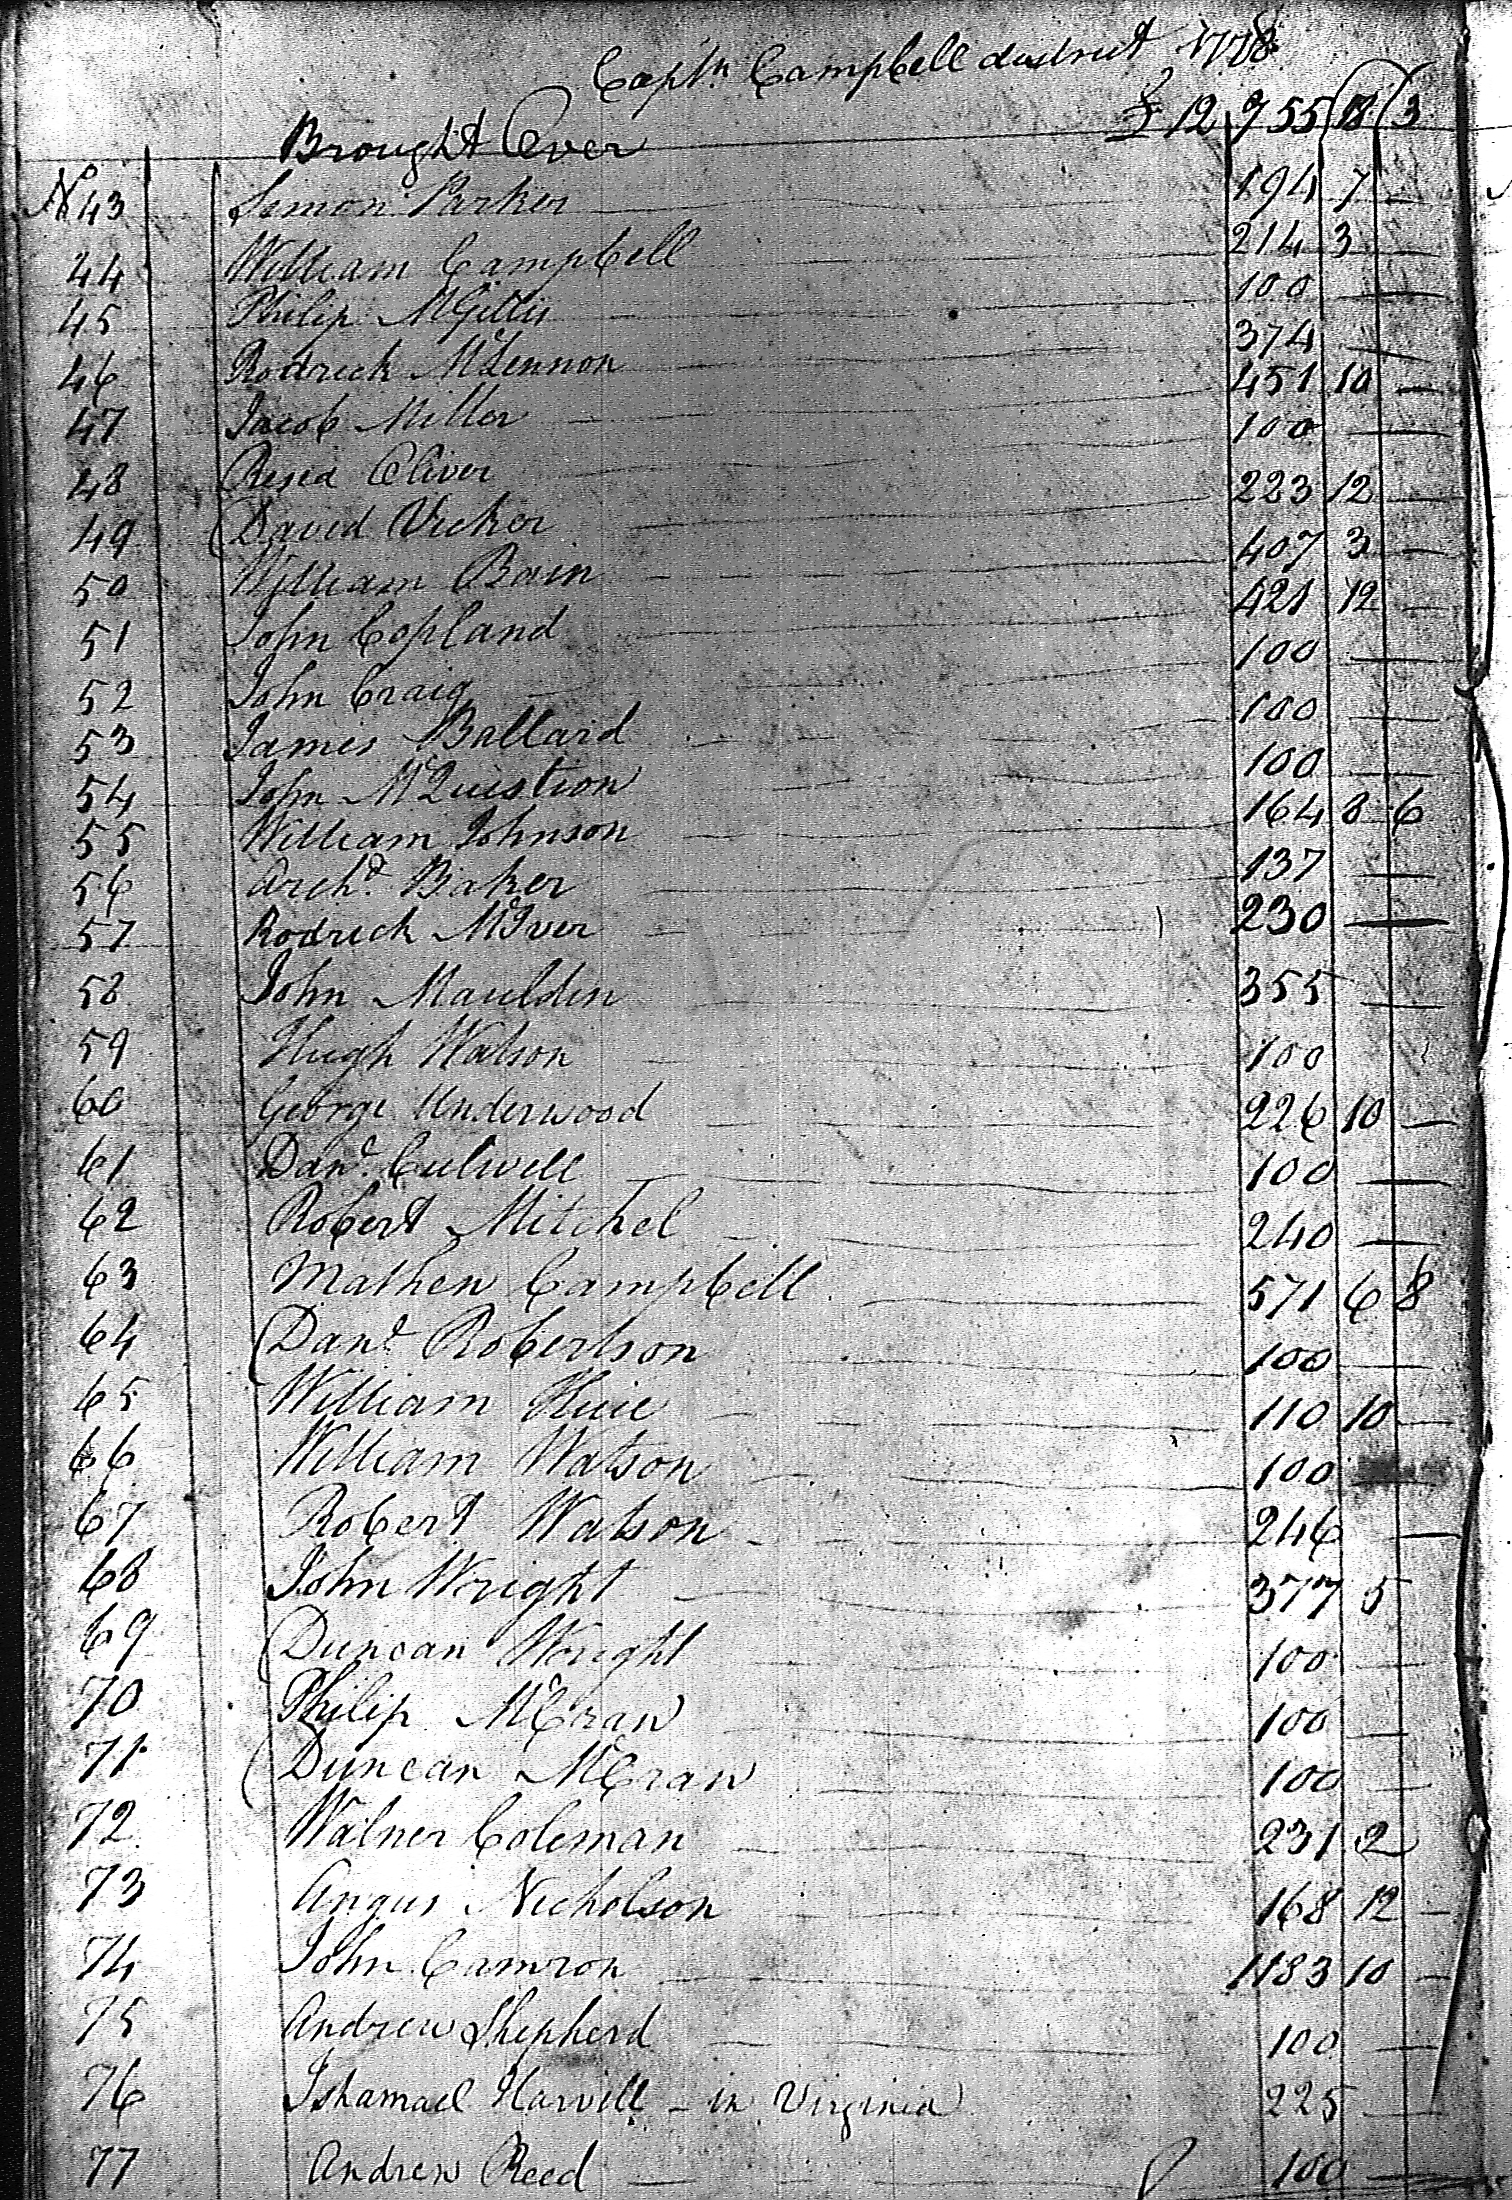 Captn. Campbell district 1778
Brought Over £ 12 955 18 3
No 43 Simon Parker 194 7 —
44 William Campbell 214 3 —
45 Philip McGillis 100 — —
46 Rodrick McLennon 374 — —
47 Jacob Miller 451 10 —
48 Oliver 100 — —
49 David Vicker 223 12 —
50 William Bain 407 3 —
51 John Copland 421 12 —
52 John Craig 100 — —
53 James Ballard 100 — —
54 John McQuistion 100 — —
55 William Johnson 164 8 6
56 Archd. Baker 137 — —
57 Rodrick McIver 230 — —
58 John Mauldin 355 —
59 Hugh Watson 100
60 George Underwood 226 10 —
61 Danl. Culwell 100 — —
62 Robert Mitchel 240 — —
63 Mathew Campbell 571 6 8
64 Danl. Robertson 100 — —
65 William Huie 110 10 —
66 William Watson 100
67 Robert Watson 246 —
68 John Wright 377 5
69 Duncan Wright 100 — —
70 Philip McCran 100 — —
71 Duncan McCran 100 — —
72 Walner Coleman 231 2
73 Angus Nicholson 168 12 —
74 John Camron 1183 10 —
75 Andrew Shepherd 100 —
76 Ishamael Harvill – in Virginia 225 —
77 Andrew Reed 100 —